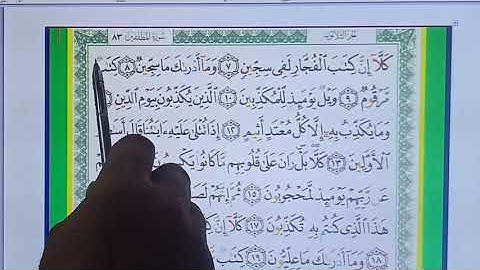 سورة المطففين ٨٣ الجزء الثلاثون
كَلَّآ إِنَّ كِتَٰبَ ٱلْفُجَّارِ لَفِى سِجِّينٍ ٧ وَمَآ أَدْرَىٰكَ مَا سِجِّينٌ ٨ كِتَٰبٌ
مَّرْقُومٌ ٩ وَيْلٌ يَوْمَئِذٍ لِّلْمُكَذِّبِينَ ١٠ ٱلَّذِينَ يُكَذِّبُونَ بِيَوْمِ ٱلدِّينِ
وَمَا يُكَذِّبُ بِهِۦٓ إِلَّا كُلُّ مُعْتَدٍ أَثِيمٍ ١٢ إِذَا تُتْلَىٰ عَلَيْهِ ءَايَٰتُنَا قَالَ
ٱلْأَوَّلِينَ ١٣ كَلَّا ۖ بَلْ ۜ رَانَ عَلَىٰ قُلُوبِهِم مَّا كَانُوا۟
عَن رَّبِّهِمْ يَوْمَئِذٍ لَّمَحْجُوبُونَ ١٥ ثُمَّ إِنَّهُمْ
هَٰذَا ٱلَّذِى كُنتُم بِهِۦ تُكَذِّبُونَ ١٧ كَلَّآ إِنَّ
١٨ وَمَآ أَدْرَىٰكَ مَا عِلِّيُّونَ ١٩